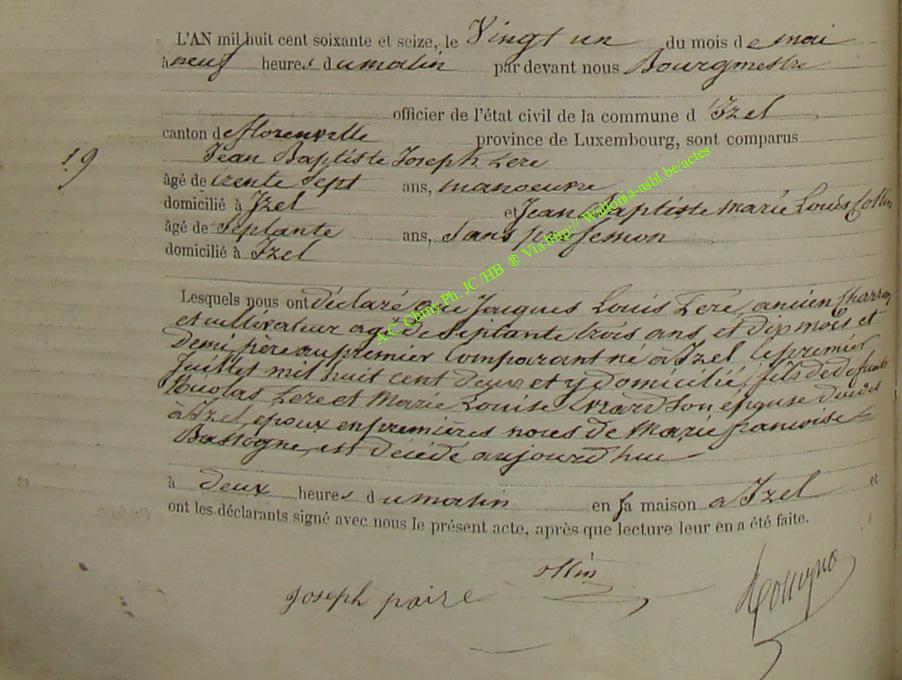 L'AN mil huit cent soixante et seize, le Vingt un du mois de mai
à neuf heures du matin par devant nous Bourgmestre
officier de l'état civil de la commune d'Izel
canton de florenville province de Luxembourg, sont comparus
19
Jean Baptiste Joseph
âgé de trente sept ans, manoeuvre
domicilié à Izel et Jean Baptiste Marie Louis Collin
âgé de Septante ans, Sans profession
domicilié à Izel
A.C. Chiny Ph. JC /HB ® Via http:// Wallonia-asbl.be/actes
Lesquels nous ont déclaré que Jacques Louis ancien Charron
et cultivateur agé de Septante trois ans et dix mois et
Demi père au premier Comparant né à Izel le premier
Juillet mil huit cent deux et y domicilié, fils de défunts
Nicolas et Marie Louise son épouse décédés
à Izel, époux en premières noces de Marie françoise
Bastogne, est décédé aujourd'hui
à deux heures du matin en sa maison à Izel et
ont les déclarants signé avec nous le présent acte, après que lecture leur en a été faite.
Joseph